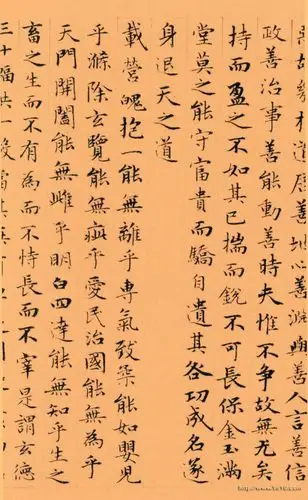 故幾於道居善地心善淵與善人言善信
政善治事善能動善時夫惟不爭故無尤矣
持而盈之不如其已揣而銳不可長保金玉滿
堂莫之能守富貴而驕自遺其咎功成名遂
身退天之道
載營魄抱一能無離乎專氣致柔能如嬰兒
乎滌除玄覽能無疵乎愛民治國能無為乎
天門開闔能無雌乎明白四達能無知乎生之
畜之生而不有為而不恃長而不宰是謂玄德
三十輻共一轂當其無有